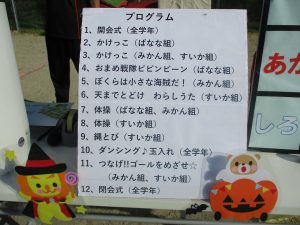 プログラム
1、開会式（全学年）
2、かけっこ（ばなな組）
3、かけっこ（みかん組、すいか組）
4、おまめ戦隊ビビンビーン（ばなな組）
5、ぼくらは小さな海賊だ！（みかん組）
6、天までとどけ　わらしうた（すいか組）
7、体操（ばなな組、みかん組）
8、体操（すいか組）
9、縄とび（すいか組）
10、ダンシング♪玉入れ（全学年）
11、つなげ!!ゴールをめざせ☆
（みかん組、すいか組）
12、閉会式（全学年）
あか
しろ